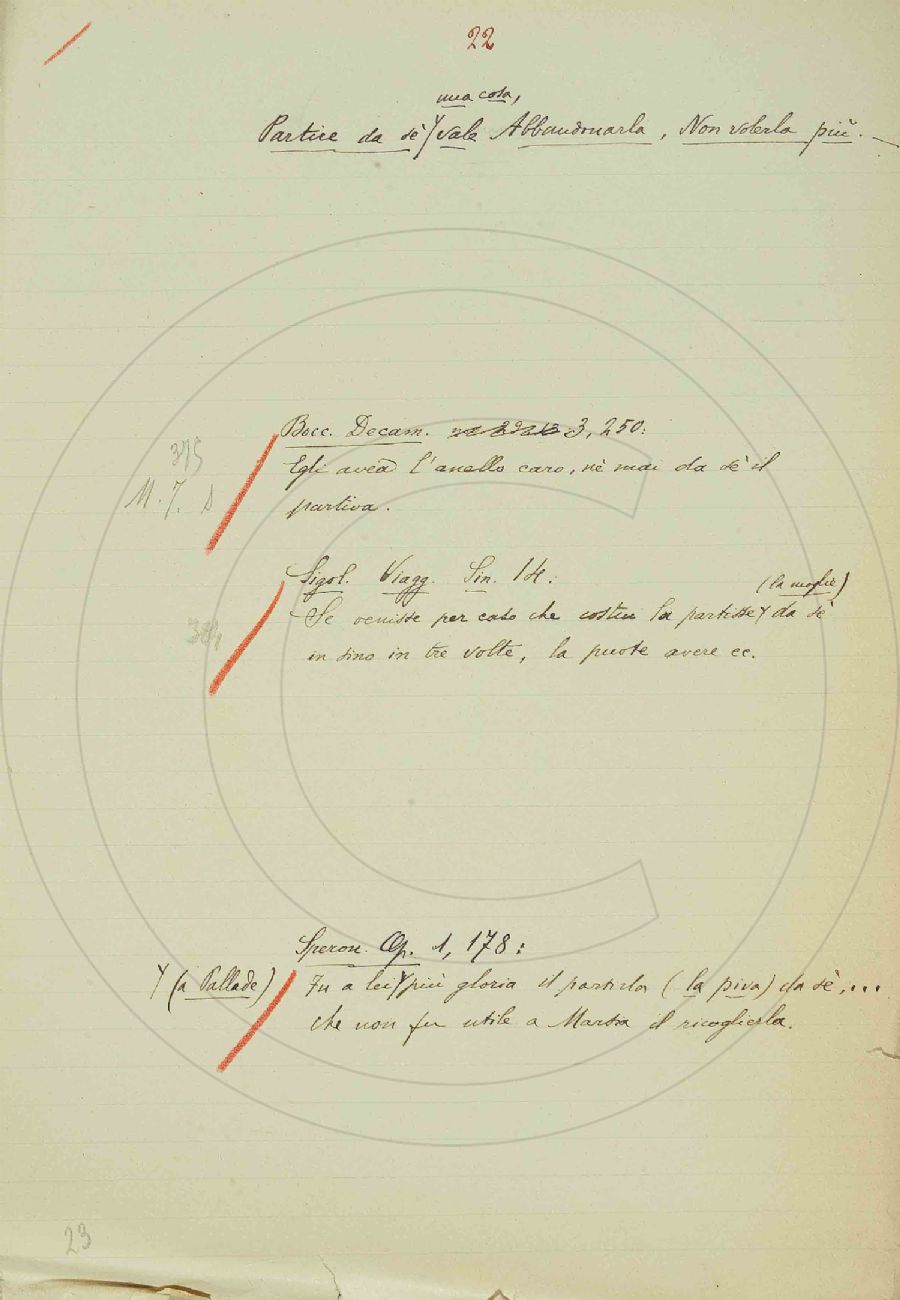 22
una cosa,
Partire da sè Y vale Abbandonarla, Non volerla più. —
Bocc. Decam. 3, 250:
375
Egli avea l'anello caro, nè mai da sè il
M. J. D
partiva.
Sigol. Viagg. Sin. 14:
(la moglie)
384
Se venisse per caso che costui la partisse Y da sè
in sino in tre volte, la puote avere ec.
Speron. Op. 1, 178:
Y (a Pallade)
Fu a lei Y più gloria il partirla (la piva) da sè, ...
che non fu utile a Marsia il ricoglierla.
23